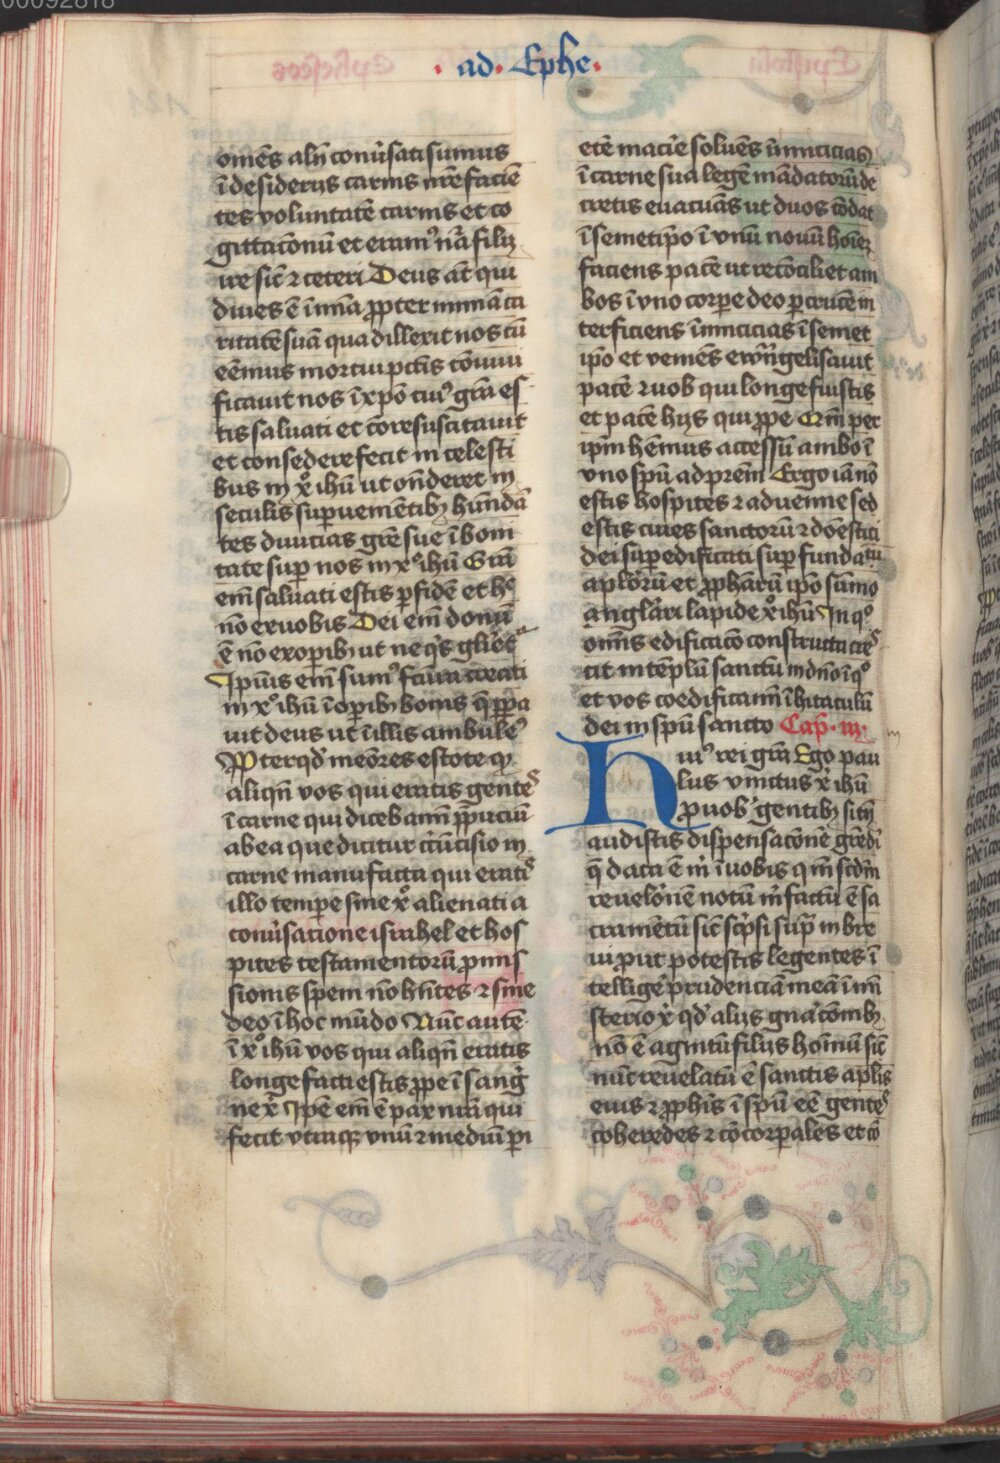 00092818
· ad · Ephe ·
omēs aliq̄ conv̄sati sumus
ī desiderijs carnis nr̄e facie
tes voluntatē carnis et co
gitacōnū et eramꝰ nā filij
ire sic̄ ⁊ ceteri Deus aūt qui
diues ē ī mīa ꝓpter nimiā ca
ritatē suā qua dillexit nos cū
eēmus mortui pctīs cōuiui
ficauit nos ī xp̄o cuiꝰ grā es
tis saluati et cōresuscitauit
et consedere fecit in celesti
bus in xͦ ihū ut ōnderet in
seculis suꝑuenientibꝫ hūndā
tes diuicias grē sue ī boni
tate suꝑ nos in xͦ ihū Grā
em̄ saluati estis ꝑ fidē et hͦ
nō ex uobis Dei em̄ donū
ē nō ex oꝑibꝫ ut ne qͥs gliēt
Ipīus em̄ sumꝰ fcūra creati
in xͦ ihū ī oꝑibꝫ bonis q̄ p̄ꝑa
uit deus ut ī illis ambulēꝰ
Ꝓpter qd̄ meōres estote qꝫ
aliqn̄ vos qui eratis genteˢ
ī carne qui dicebamī p̄puciū
ab ea que dicitur cūcisio in
carne manu facta qui eratiˢ
illo tempe sine xͦ alienati a
conūsatione israhel et hos
pites testamentorū ꝓmis
sionis spem nō hn̄tes ⁊ sine
deo ī hoc mūdo Nūc autē
ī xͦ ihū vos qui aliqn̄ eratis
longe facti estis ꝓpe ī sanḡ
ne xͥ Ipē em̄ ē pax nrā qui
fecit vtraqꝫ vnū ⁊ mediū pi
etē macīe soluēs īimicicias
ī carne sua legē mādatorū de
cretis euacuās ut duos cōdat
ī semetip̄o ī vnū nouū hoīeꝫ
faciens pacē ut recōciliet am
bos ī vno corpe deo ꝑ crucē in
terficiens īimicicias ī semet
ip̄o et veniēs ewāngelisauit
pacē ⁊ uob qui longe fuistis
et pacē hijs qui ꝓpe Qm̄ per
ip̄m hēmus accessū ambo ī
vno sp̄u ad prēm Ergo iā nō
estis hospites ⁊ aduene sed
estis ciues sanctorū ⁊ dōestici
dei suꝑedificati suꝑ fundatū
aplōrū et ꝓphārū ip̄o sūmo
anglāri lapide xͦ ihū In qͦ
omīs edificacō constructa creˢ
cit in tēplū sanctū in dn̄o ī qͦ
et vos coedificamī ī hitaculū
dei in sp̄u sancto Cap̄. iij.
Huiꝰ rei grā Ego pau
lus vinctus xͥ ihū
ꝓ uobˢ gentibꝫ si tn̄
audistis dispensacōnē grē dī
q̄ data ē m̄ ī uobis qm̄ scdm̄
reuelōnē notū m̄ factū ē sa
cramētū sic̄ scp̄si sup̄ in bre
ui ꝓut potestis legentes ī
tellige prudenciā meā ī mī
sterio xͥ qd̄ alijs gnācōnibꝫ
nō ē agnitū filijs hoīnū sic̄
nūc reuelatū ē sanctis aplīs
eius ⁊ ꝓphīs ī sp̄u eē genteˢ
coheredes ⁊ cōcorpales et cō